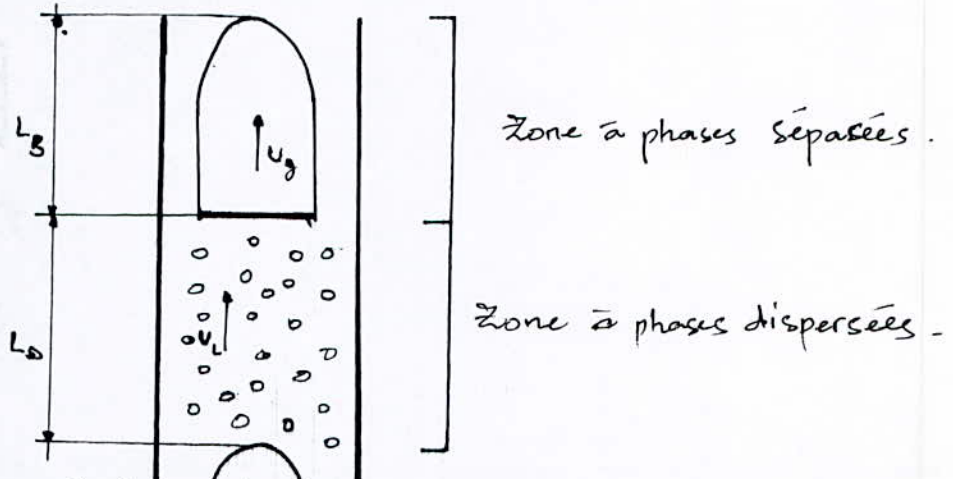 L_B
U_g
Zone à phases séparées.
L_D
U_L
Zone à phases dispersées.